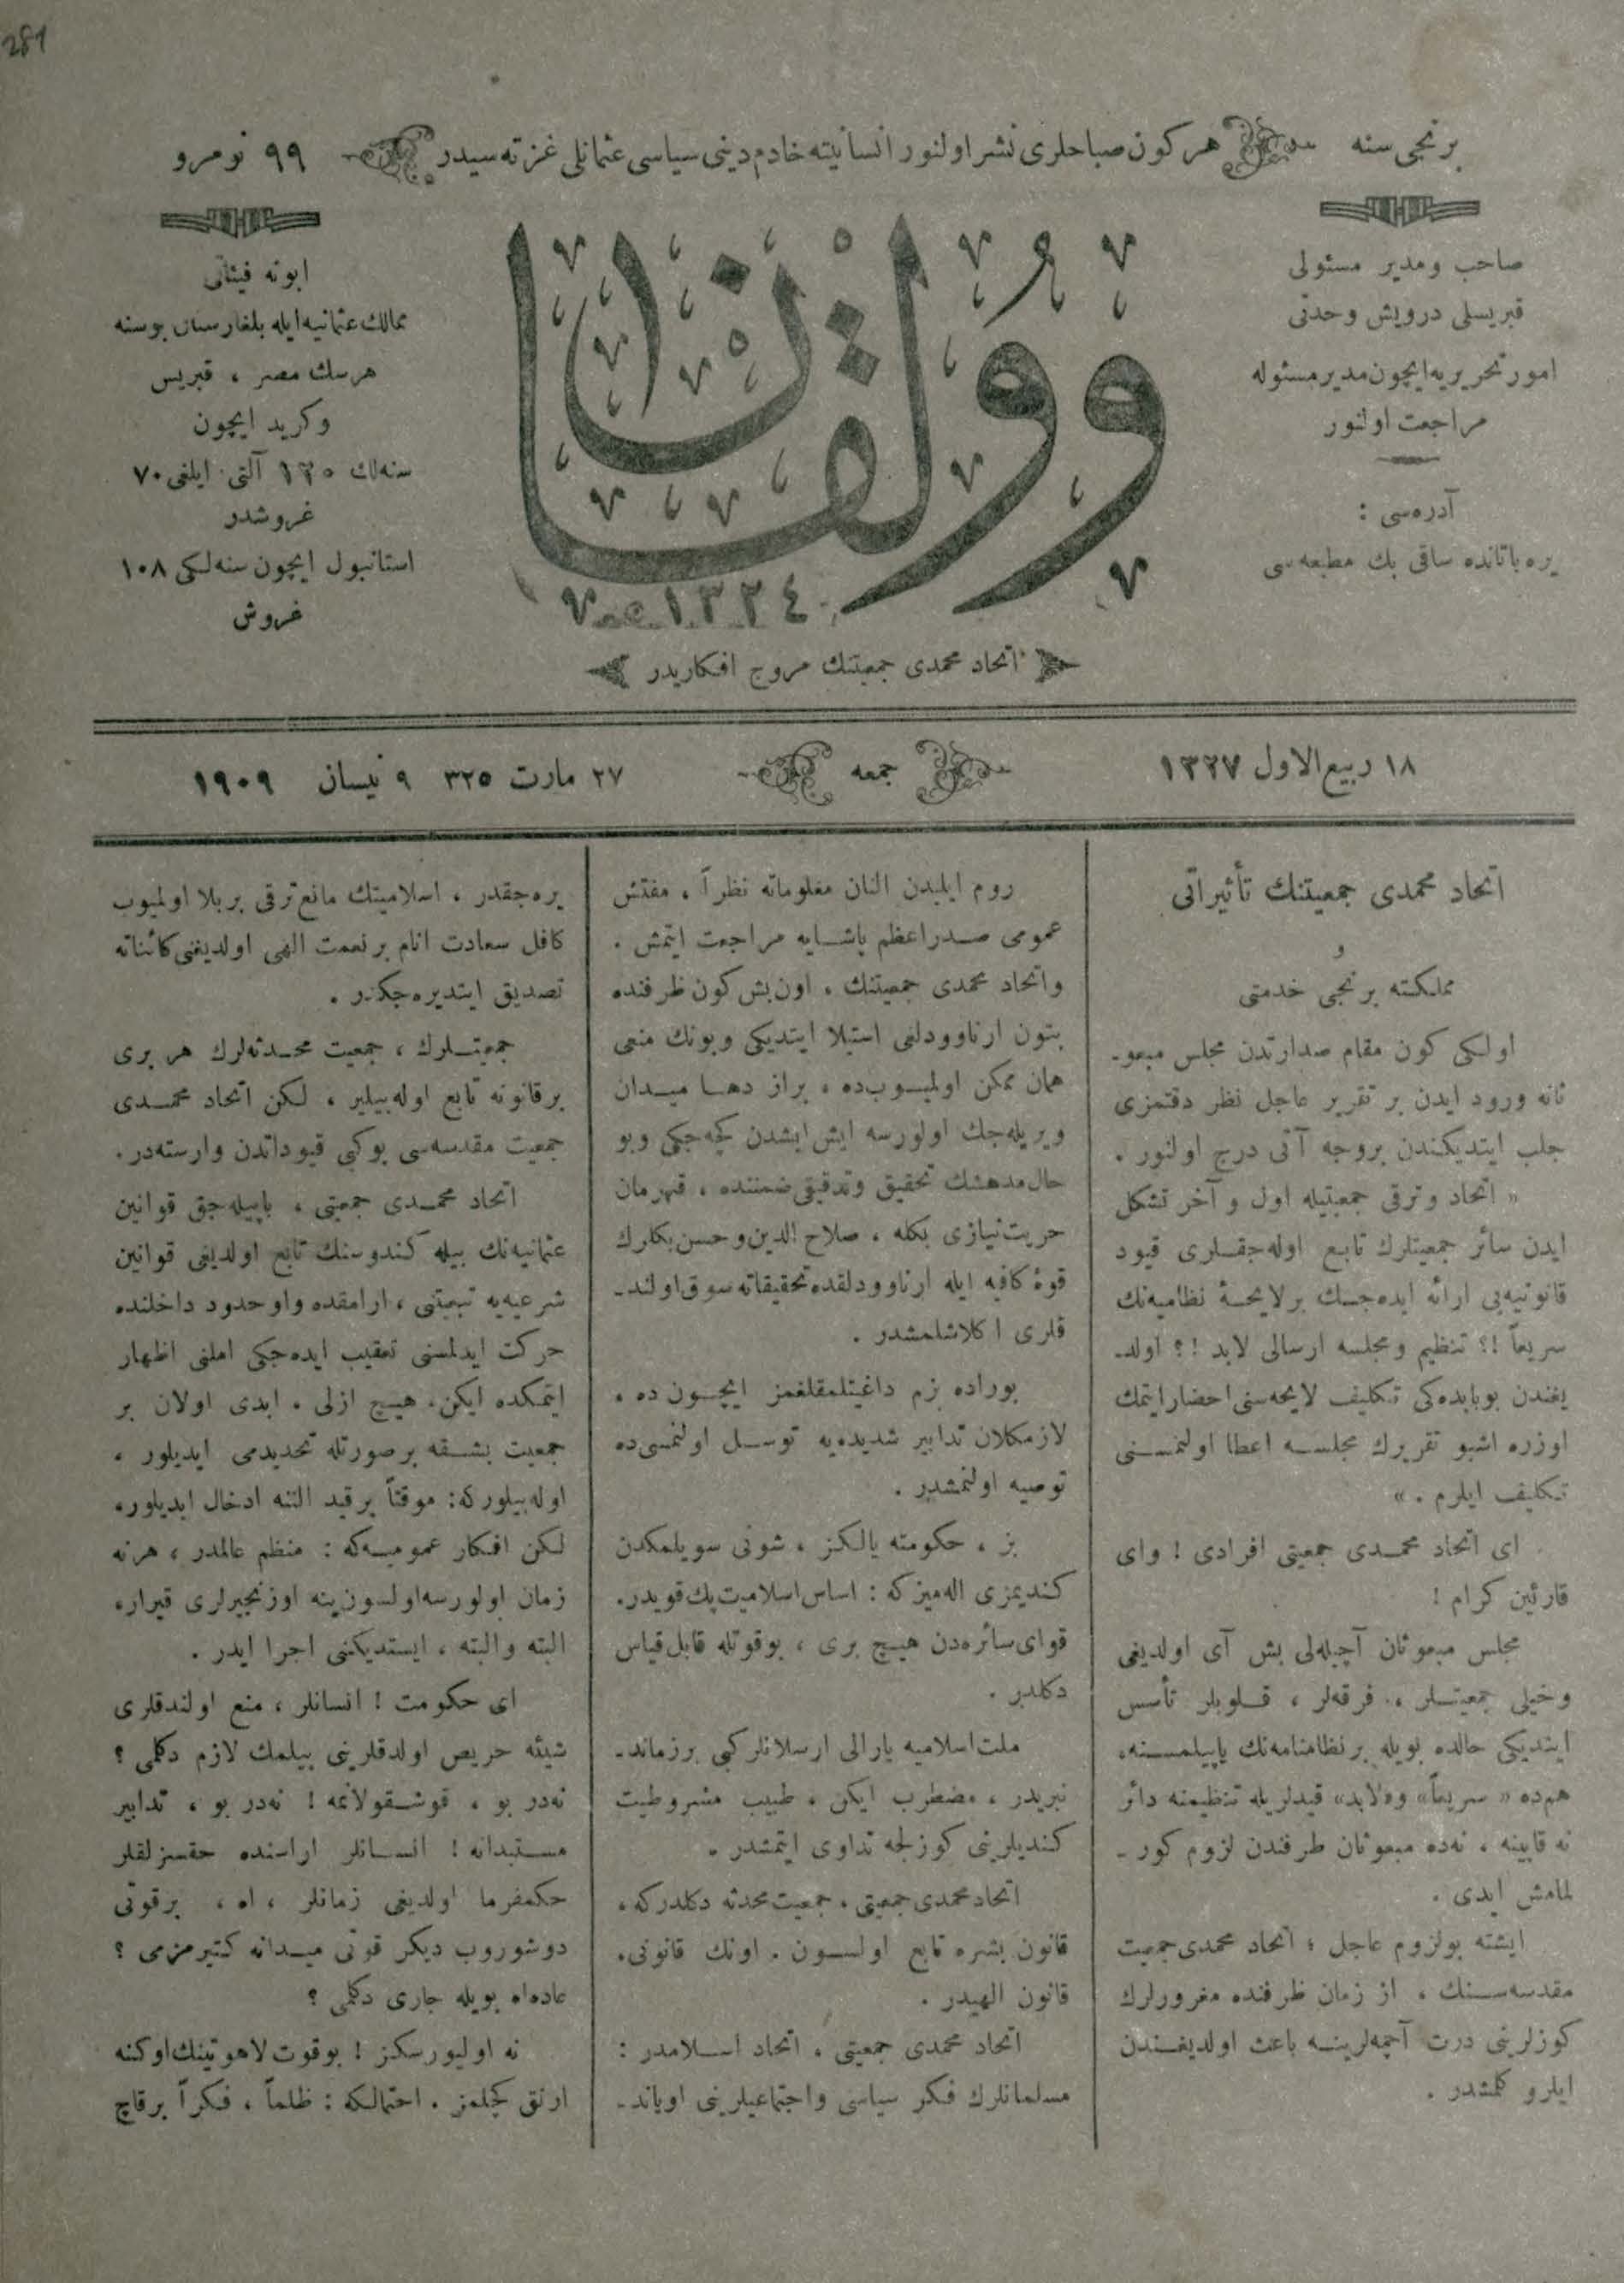 281
برنجی سنه
هر كون صباحلری نشر اولنور انسانیته خادم دینی سیاسی عثمانلی غزته سیدر
٩٩ نومرو
صاحب و مدیر مسئولی
قبریسلی درویش وحدتی
امور تحریریه ایچون مدیر مسئوله
مراجعت اولنور
آدره سی :
یره باتانده ساقی بك مطبعه سی
وولقان
١٣٢٤
اتحاد محمدی جمعیتنك مروج افكاریدر
ابونه فیئاتی
ممالك عثمانیه ایله بلغارستان بوسنه
هرسك مصر ، قبریس
و كرید ایچون
سنه لك ١٢٥ آلتی ایلغی ٧٠
غروشدر
استانبول ایچون سنه لكی ١٠٨
غروش
١٨ ربیع الاول ١٣٢٧
جمعه
٢٧ مارت ٣٢٥ ٩ نیسان ١٩٠٩
اتحاد محمدی جمعیتنك تأثیراتی
و
مملكته برنجی خدمتی
اولكی كون مقام صدارتدن مجلس مبعو-
ثانه ورود ایدن بر تقریر عاجل نظر دقتمزی
جلب ایتدیكندن بروجه آتی درج اولنور .
« اتحاد و ترقی جمعیتیله اول و آخر تشكل
ایدن سائر جمعیتلرك تابع اوله جقلری قیود
قانونیه یی ارائه ایده جك بر لایحهٔ نظامیه نك
سریعاً !؟ تنظیم و مجلسه ارسالی لابد !؟ اولد-
یغندن بوبابده كی تكلیف لایحه سنی احضار ایتمك
اوزره اشبو تقریرك مجلسه اعطا اولنمسنی
تكلیف ایلرم . »
ای اتحاد محمدی جمعیتی افرادی ! و ای
قارئین كرام !
مجلس مبعوثان آچیله لی بش آی اولدیغی
و خیلی جمعیتلر ، فرقه لر ، قلوبلر تأسس
ایتدیكی حالده بویله بر نظامنامه نك یاپیلمسنه ،
هم ده « سریعاً » و « لابد » قیدلریله تنظیمنه دائر
نه قابینه ، نه ده مبعوثان طرفندن لزوم كور -
لمامش ایدی .
ایشته بو لزوم عاجل ؛ اتحاد محمدی جمعیت
مقدسه سنك ، از زمان ظرفنده مغرورلرك
كوزلرینی درت آچمه لرینه باعث اولدیغندن
ایلرو كلمشدر .
روم ایلیدن النان معلوماته نظراً ، مفتش
عمومی صدر اعظم پاشایه مراجعت ایتمش .
و اتحاد محمدی جمعیتنك ، اون بش كون ظرفنده
بتون ارناوودلغی استیلا ایتدیكی و بونك منعی
همان ممكن اولمیوب ده ، براز دها میدان
ویریله جك اولورسه ایش ایشدن كچه جكی و بو
حال مدهشك تحقیق و تدقیقی ضمننده ، قهرمان
حریت نیازی بكله ، صلاح الدین و حسن بكلرك
قوهٔ كافیه ایله ارناوودلقده تحقیقاته سوق اولند-
قلری اكلاشلمشدر .
بوراده بزم داغیتلمقلغمز ایچون ده ،
لازمكلان تدابیر شدیده یه توسل اولنمسی ده
توصیه اولنمشدر .
بز ، حكومته یالكز ، شونی سویلمكدن
كندیمزی اله میز كه : اساس اسلامیت پك قویدر .
قوای سائره دن هیچ بری ، بو قوتله قابل قیاس
دكلدر .
ملت اسلامیه یارالی ارسلانلر كبی بر زماند-
نبریدر ، مضطرب ایكن ، طبیب مشروطیت
كندیلرینی كوزلجه تداوی ایتمشدر .
اتحاد محمدی جمعیتی ، جمعیت محدثه دكلدر كه ،
قانون بشره تابع اولسون . اونك قانونی ،
قانون الهیدر .
اتحاد محمدی جمعیتی ، اتحاد اسلامدر :
مسلمانلرك فكر سیاسی و اجتماعیلرینی اویاند-
یره جقدر ، اسلامیتك مانع ترقی بر بلا اولمیوب
كافل سعادت انام بر نعمت الهی اولدیغنی كائناته
تصدیق ایتدیره جكدر .
جمعیتلرك ، جمعیت محدثه لرك هر بری
بر قانونه تابع اوله بیلیر ، لكن اتحاد محمدی
جمعیت مقدسه سی بو كبی قیوداتدن وارسته در .
اتحاد محمدی جمعیتی ، یاپیله جق قوانین
عثمانیه نك بیله كندوسنك تابع اولدیغی قوانین
شرعیه یه تبعیتنی ، ارامقده و او حدود داخلنده
حركت ایدلمسنی تعقیب ایده جكی املنی اظهار
ایتمكده ایكن ، هیچ ازلی ، ابدی اولان بر
جمعیت بشقه بر صورتله تحدیدمی ایدیلور ،
اوله بیلور كه : موقتاً بر قید التنه ادخال ایدیلور ،
لكن افكار عمومیه كه : منظم عالمدر ، هر نه
زمان اولورسه اولسون ینه او زنجیرلری قیرار ،
البته و البته ، ایستدیكنی اجرا ایدر .
ای حكومت ! انسانلر ، منع اولندقلری
شیئه حریص اولدقلرینی بیلمك لازم دكلمی ؟
نه در بو ، قوشقولانمه ! نه در بو ، تدابیر
مستبدانه ! انسانلر اراسنده حقسزلقلر
حكمفرما اولدیغی زمانلر ، اه ، بر قوتی
دوشوروب دیكر قوتی میدانه كتیرمزمی ؟
عادةاه بویله جاری دكلمی ؟
نه اولیورسكز ! بو قوت لاهوتینك اوكنه
ارتق كچلمز . احتمالكه : ظلماً ، فكراً بر قاچ